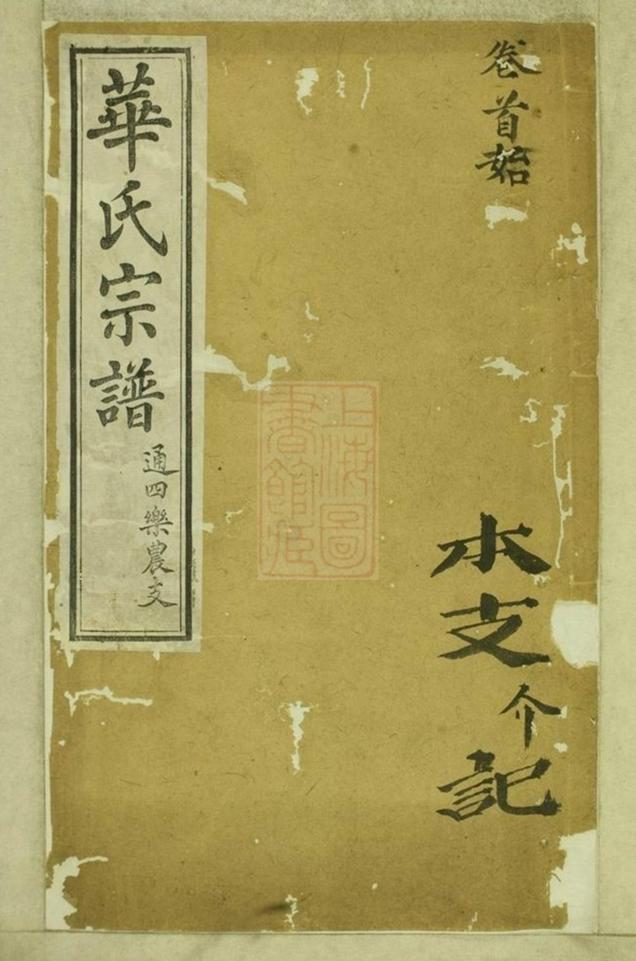 卷首始
水支
介
記
上海圖
書館藏
華氏宗譜
通四樂農支